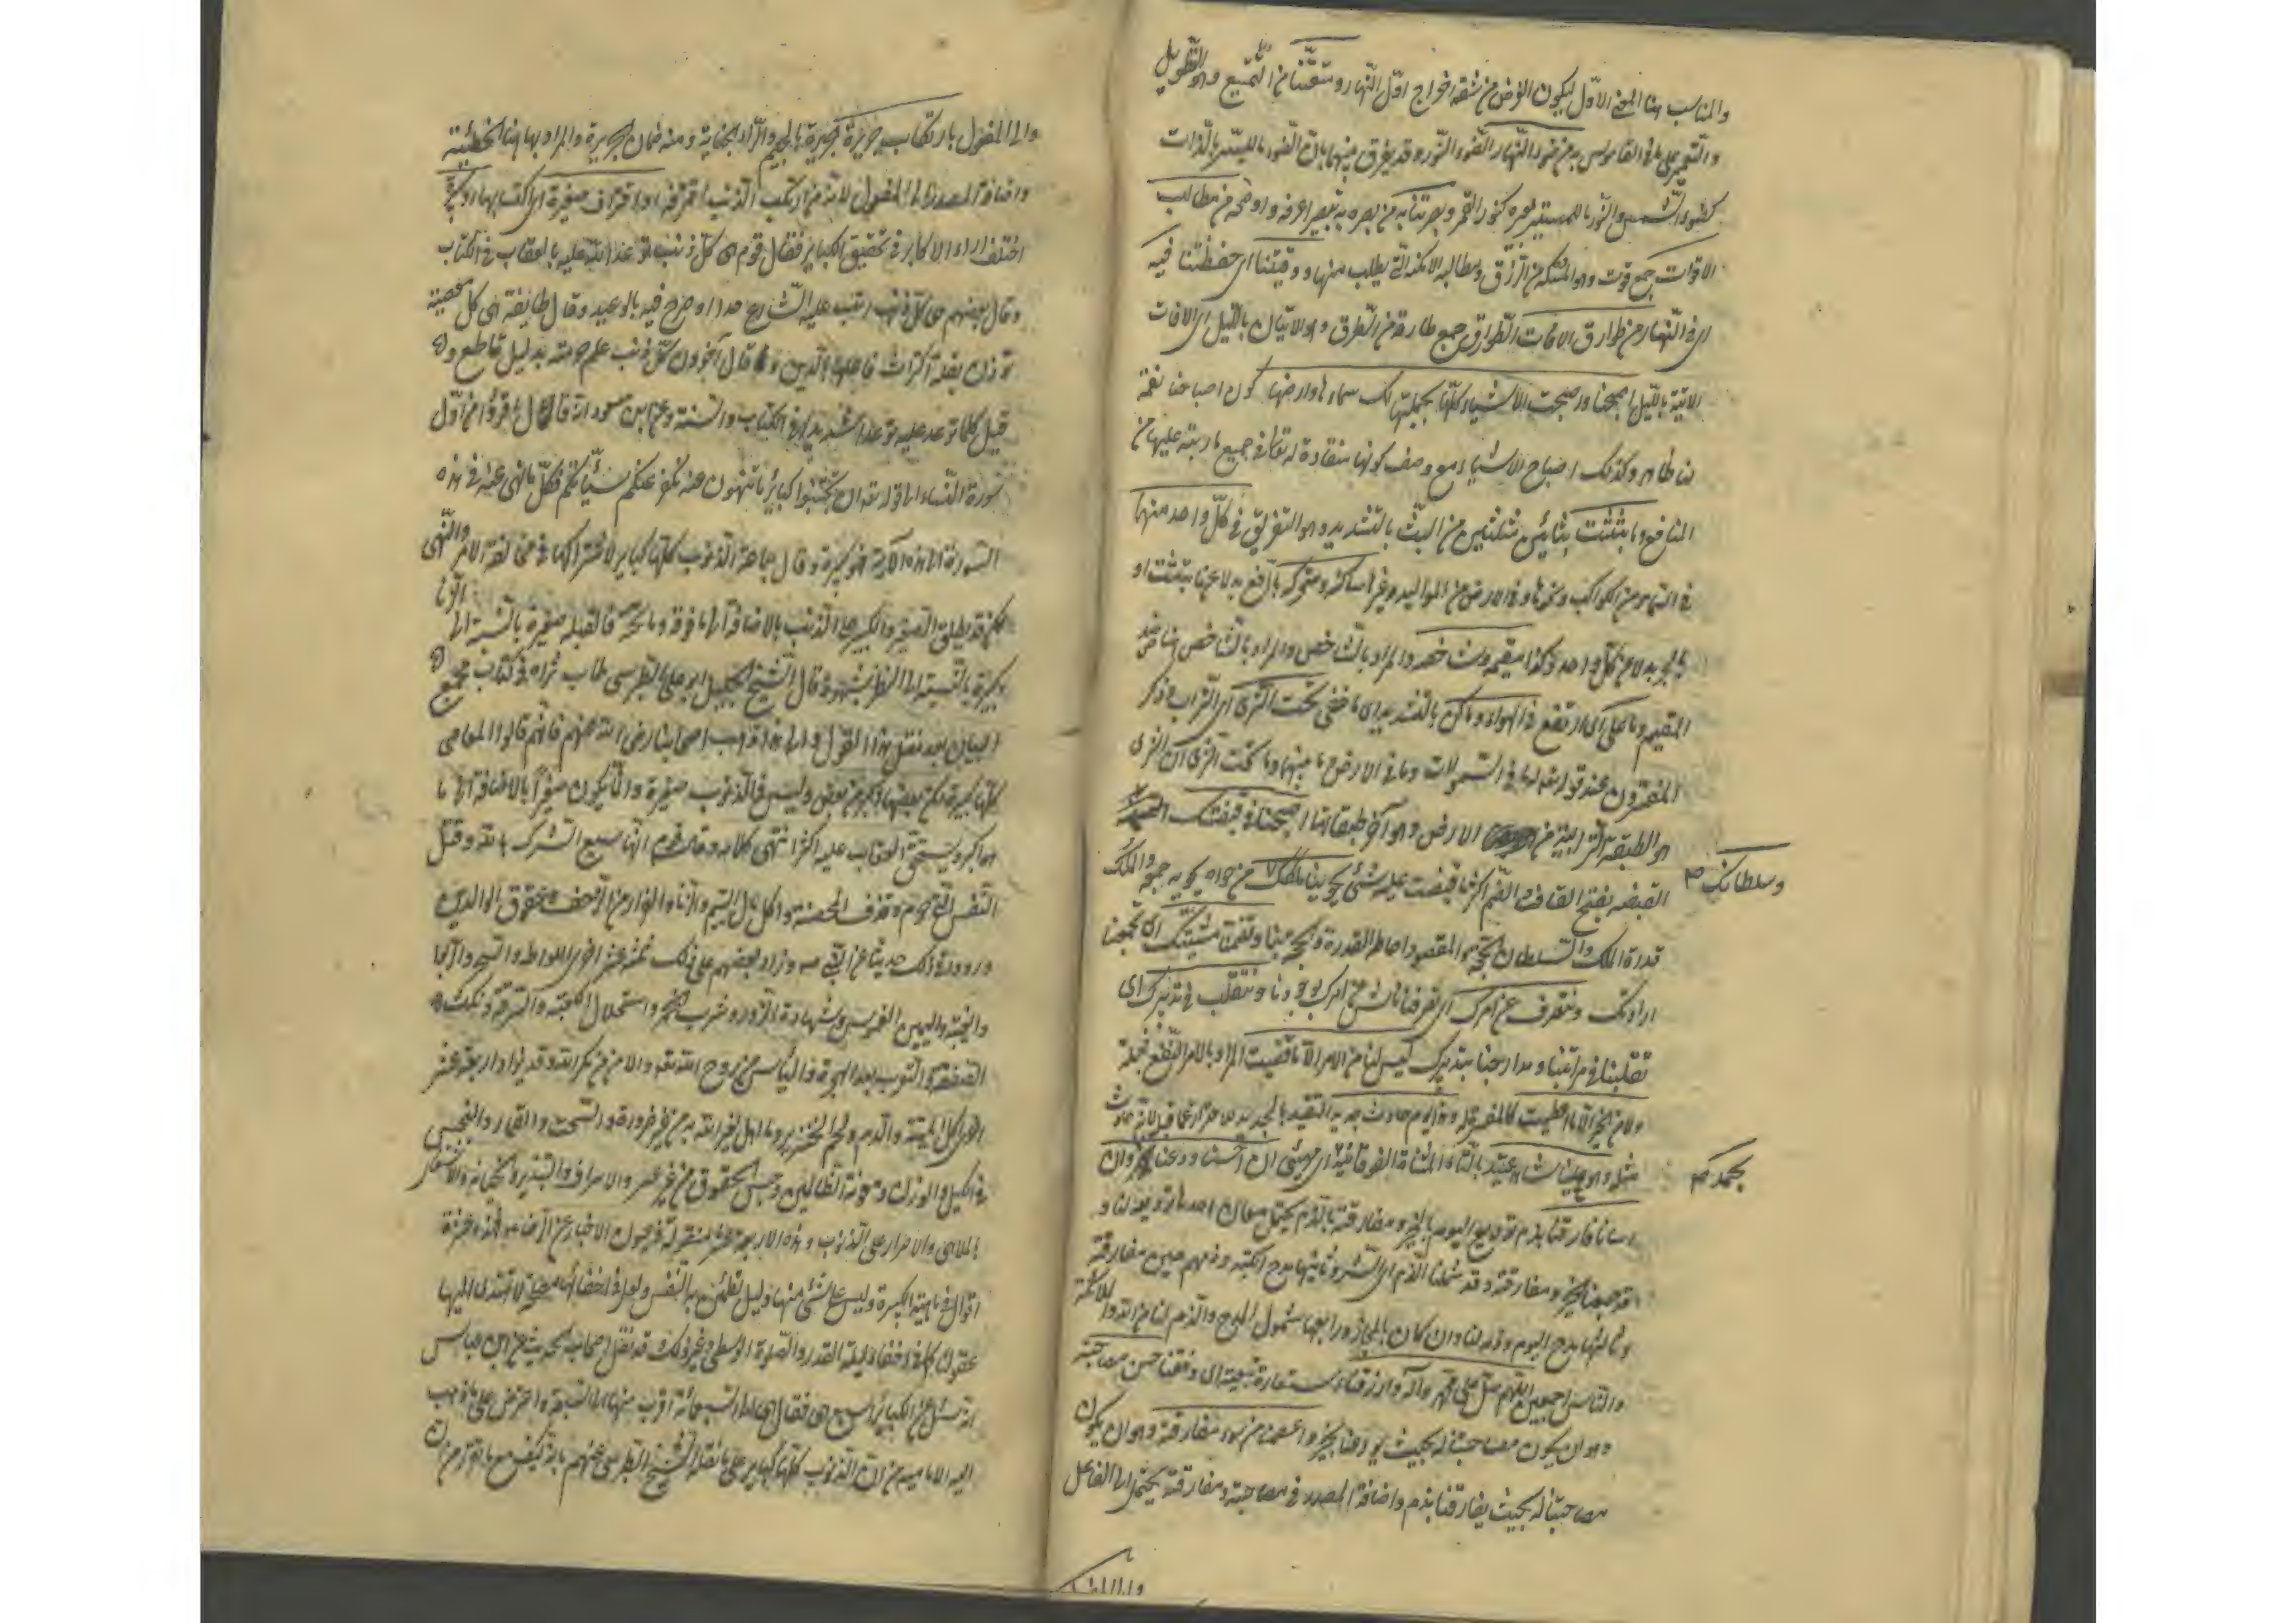 والمناسب هنا المعنى الاول ليكون الغرض من شقه اخراج اول النهار ومتعتنا من التمتيع وهو التطويل
والتعمير على ما في القاموس به من ضوء النهار الضوء النور وقد يفرق بينهما بان الضوء للمستنير بالذات
كضوء الشمس والنور للمستنير بغيره كنور القمر وبصرتنا به من بصره به تبصيرا عرفه واوضحه من مطالب
الاقوات جمع قوت وهو الممسكة من الرزق ومطالبه الامكنة التي يطلب منها ووقيتنا اي حفظتنا فيه
اي في النهار من طوارق الافات الطوارق جمع طارقة من الطرق وهو الاتيان بالليل اي الافات
الاتية بالليل اصبحنا واصبحت الاشياء كلها بجملتها لك سماءها وارضها كون اصباحنا نعمة
لنا ظاهر وكذلك اصباح الاشياء مع وصف كونها منقادة له تعالى في جميع ما رتبه عليها من
المنافع وما بثثت بثائين مثلثتين من البث بالتشديد وهو التفريق في كل واحد منهما
في السماء من الكواكب ونحوها وفي الارض من المواليد وغيرها ساكنه ومتحركه بالرفع بدلا عن ما بثثت او
بالجر بدلا عن كل واحد وكذا مقيمه وشاخصه والمراد بالشاخص والمراد بالشاخص هنا ضد
المقيم وما علا اي ارتفع في الهواء وما كن بالتشديد اي ما خفي تحت الثرى اي التراب ذكر
المفسرون عند قوله تعالى له ما في السموات وما في الارض وما بينهما وما تحت الثرى ان الثرى
هو الطبقة الترابية من الارض وهو آخر طبقاتها اصبحنا في قبضتك
وسلطانك صح
القبضه بفتح القاف والضم اكثر ما قبضت عليه من شئ يحوينا ملكك من حواه يحويه جمعه والملك
قدرة الملك والسلطان الحجة والمقصود احاطة القدرة والحجة بنا وتضمنا مشيتك اي تجمعنا
ارادتك ونتصرف عن امرك اي تصرفنا ناش عن امرك بوجودنا ونتقلب في تدبيرك اي
تقلبنا في مراتبنا ومدارجنا بتدبيرك ليس لنا من الامر الا ما قضيت المراد بالامر النفع فجملة
ولا من الخير الا ما اعطيت كالمفسر له وهذا يوم حادث جديد التقييد بالجديد للاحتراز عما قبله لانه حادث
مثله وهو علينا شاهد عتيد بالتاء المثناة الفوقانية اي مهيئ ان احسنا ودعنا وان
بحمد صح
اسانا فارقنا بذم توديع اليوم بالخير ومفارقته بالذم يحتمل معان احدها توديعه لنا و
قد جمعنا الخير ومفارقته وقد شملنا الذم اي الشر وثانيها مدح الكتبه وذمهم حين مفارقته
وثالثها مدح اليوم وذمه لنا وان كان بالمجاز ورابعها شمول المدح والذم لنا من الله والملائكة
والناس اجمعين اللهم صل على محمد وآله وارزقنا استعارة تبعية اي وفقنا حسن مصاحبته
وهو ان يكون مصاحبتنا له بحيث يودعنا بخير واعصمنا من سوء مفارقته وهو ان يكون
مصاحبتنا له بحيث يفارقنا بذم واضافة المصدر في مصاحبته ومفارقته يحتمل الى الفاعل
والى المفعول بارتكاب جريرة الجريرة بالجيم والراء الجناية ومنه ضمان الجريرة والمراد بها هنا الخطيئة
واضافة المصدر الى المفعول لانه من ارتكب الذنب اقترفه او اقتراف صغيرة اي اكتسابها او كبيرة
اختلف اراء الاكابر في تحقيق الكباير فقال قوم هي كل ذنب توعد الله عليه بالعقاب في الكتاب
وقال بعضهم هي كل ذنب رتب عليه الشارع حدا او صرح فيه بالوعيد وقال طايفة هي كل معصية
تؤذن بقلة اكتراث فاعلها بالدين وقال آخرون كل ذنب علم حرمته بدليل قاطع و
قيل كلما توعد عليه توعدا شديدا في الكتاب والسنة وعن ابن مسعود انه قال اقرؤا من اول
سورة النساء الى قوله تعالى ان تجتنبوا كبائر ما تنهون عنه نكفر عنكم سيئاتكم فكل ما نهى عنه في هذه
السورة الى هذه الآية فهو كبيرة وقال جماعة الذنوب كلها كباير لاشتراكها في مخالفة الامر والنهي
لكن قد يطلق الصغير والكبير على الذنب بالاضافة الى ما فوقه وما تحته فالقبلة صغيرة بالنسبة الى الزنا
وكبيرة بالنسبة الى النظر بشهوة قال الشيخ الجليل ابو علي الطبرسي طاب ثراه في كتاب مجمع
البيان بعد نقل هذا القول والى هذا ذهب اصحابنا رضي الله عنهم فانهم قالوا المعاصي
كلها كبيرة لكن بعضها اكبر من بعض وليس في الذنوب صغيرة وانما يكون صغيرا بالاضافة الى ما
هو اكبر ويستحق العقاب عليه اكثر انتهى كلامه وقال قوم انها سبع الشرك بالله وقتل
النفس التي حرم الله وقذف المحصنة واكل مال اليتيم والزنا والفرار من الزحف وعقوق الوالدين
ورووا في ذلك حديثا عن النبي ص وزاد بعضهم على ذلك ثلثة عشر اخرى اللواط والسحر والربا
والغيبة واليمين الغموس وشهادة الزور وشرب الخمر واستحلال الكعبة والسرقة ونكث
الصفقة والتعرب بعد الهجرة واليأس من روح الله تعالى والامن من مكر الله وقد يزاد اربعة عشر
اخرى اكل الميتة والدم ولحم الخنزير وما اهل لغير الله به من غير ضرورة والسحت والقمار والبخس
في الكيل والوزن ومعونة الظالمين وحبس الحقوق من غير عسر والاسراف والتبذير والخيانة والاشتغال
بالملاهي والاصرار على الذنوب وهذه الاربعة عشر منقولة في عيون الاخبار عن الرضا ع فهذه عشرة
اقوال في ماهية الكبيرة وليس على شئ منها دليل تطمئن به النفس ولعل في اخفائها مصلحة لا تهتدي اليها
عقولنا كما في اخفاء ليلة القدر والصلوة الوسطى وغير ذلك قد نقل اصحاب الحديث عن ابن عباس
انه سئل عن الكبائر اسبع هي فقال هي الى السبعمائة اقرب منها الى السبعة واعترض على ما ذهب
اليه الامامية من ان الذنوب كلها كباير على ما نقله الشيخ الطبرسي عنهم بانه كيف مع ما تقرر من ان